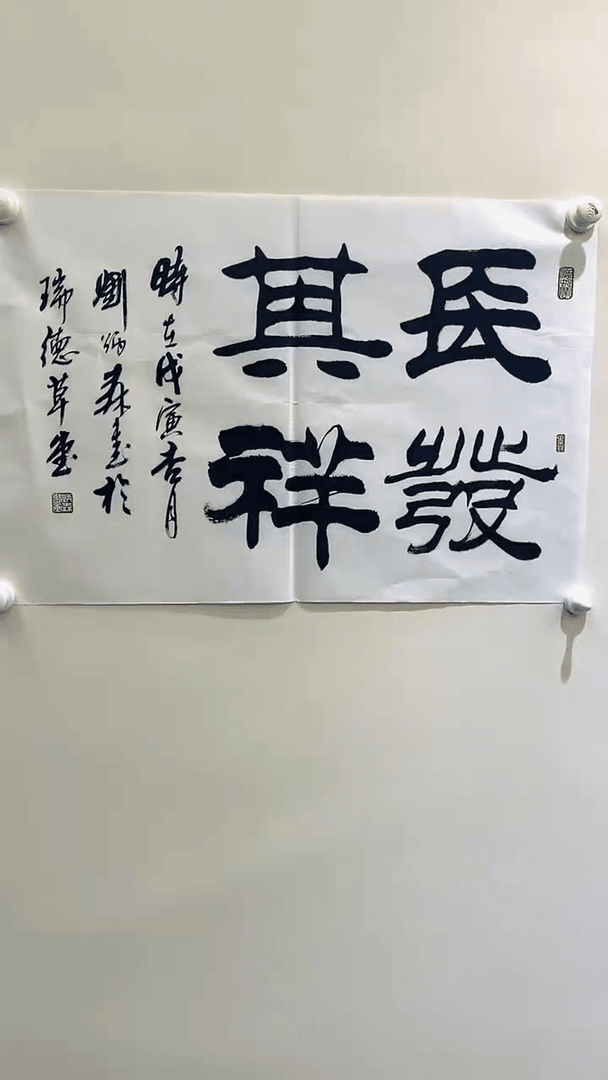 長發
其祥
時在戊寅杏月
劉炳森書於
瑞德草堂